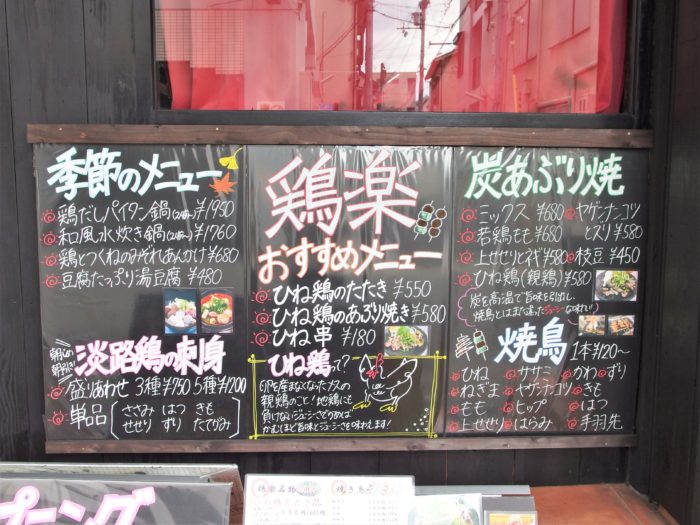 季節のメニュー
鶏だしパイタン鍋(2人前〜)¥1950
和風水炊き鍋(2人前〜)¥1960
鶏とつくねのみぞれあんかけ¥680
豆腐たっぷり湯豆腐 ¥480
淡路鶏の刺身
盛りあわせ 3種¥750 5種¥1200
単品
ささみ はつ きも
せせり ずり たてがみ
鶏楽
おすすめメニュー
ひね鶏のたたき ¥550
ひね鶏のあぶり焼き¥580
ひね串 ¥180
ひね鶏って?
卵を産まなくなったメスの
親鶏のこと!地鶏にも
負けないジューシーさとうまみ
かむほど旨味とジューシーさを味わえます!
炭あぶり焼
ミックス ¥680
若鶏もも ¥680
ヤゲンナンコツ
とズリ ¥580
枝豆 ¥450
ひね鶏(親鶏)¥580
炭を高温で旨味を引出し
焼鳥とはまた違ったジューシーな味わい!
焼鳥 1本¥120〜
ひね ササミ かわ ずり
ねぎま ヤゲンナンコツ きも
もも ヒップ はつ
上せせり はらみ 手羽先
プニング
焼き鳥